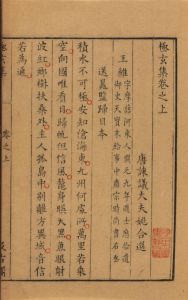 極玄集卷之上
唐諫議大夫姚合選
王維
字摩詰河東人開元九年進士歷拾遺
御史天寶末給事中肅宗時尚書右丞
送晁監歸日本
積水不可極安知滄海東九州何處所萬里若乘
空向國唯看日歸帆但信風鰲身映天黑魚眼射
波紅鄉樹扶桑外主人孤島中別離方異域音信
若為通
極玄集
卷之上